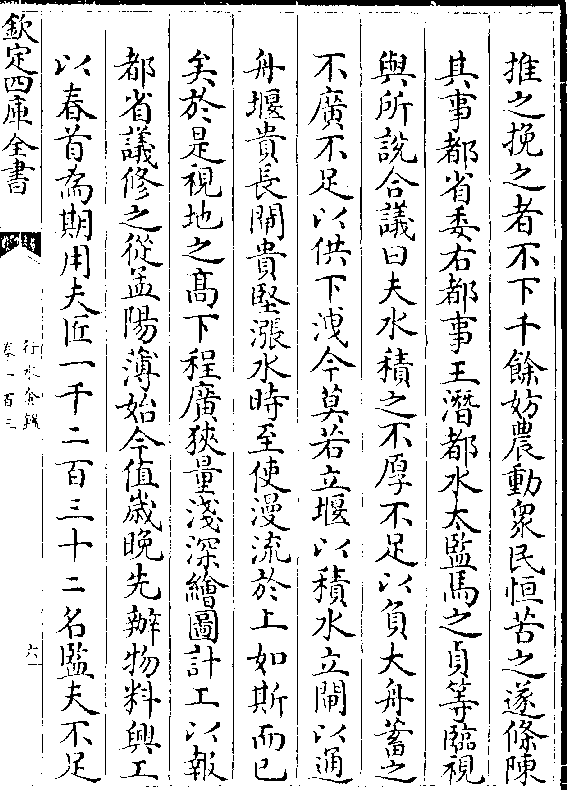 推之挽之者不下千餘妨農動衆民恒苦之遂條陳
其事都省委右都事王潛都水太監馬之貞等臨視
與所說合議曰夫水積之不厚不足以負大舟蓄之
不廣不足以供下洩今莫若立堰以積水立閘以通
舟堰貴長閘貴堅漲水時至使漫流於上如斯而已
矣於是視地之髙下程廣狹量淺深繪圖計工以報
都省議修之從孟陽薄始今值歲晚先辦物料興工
以春首為期用夫匠一千二百三十二名監夫不足
欽定四庫全書
行水金鑑
卷一百三
六